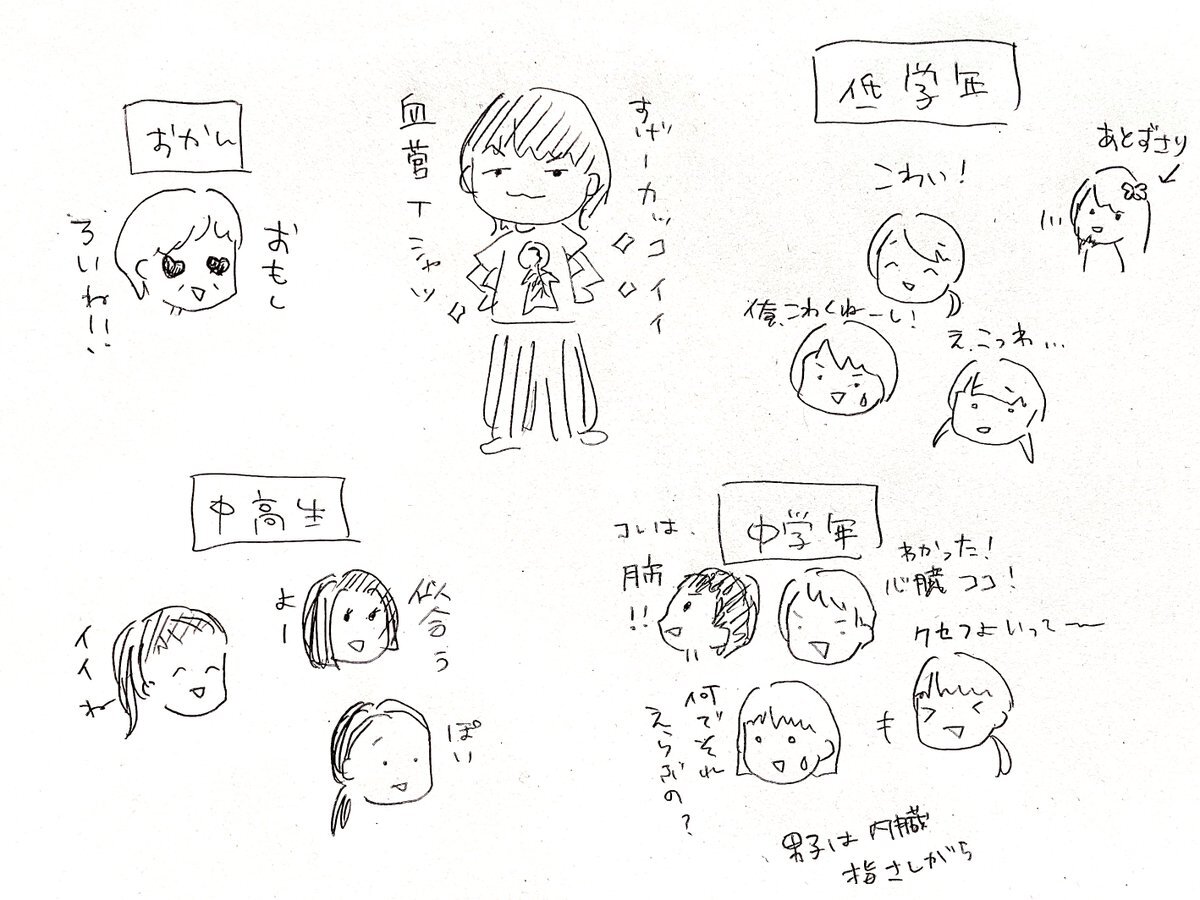 おかん
おもし
ろいね!!
すげーカッコイイ
血管Tシャツ
低学年
こわい!
あとずさり
俺、こわくねーし!
え、こっわ…
中高生
似合う
よー
イイね
ぽい
中学年
コレは、
肺!!
わかった!
心臓ココ!
クセつよいって〜
何でそれ
えらぶの?
男子は内臓
指さしがら